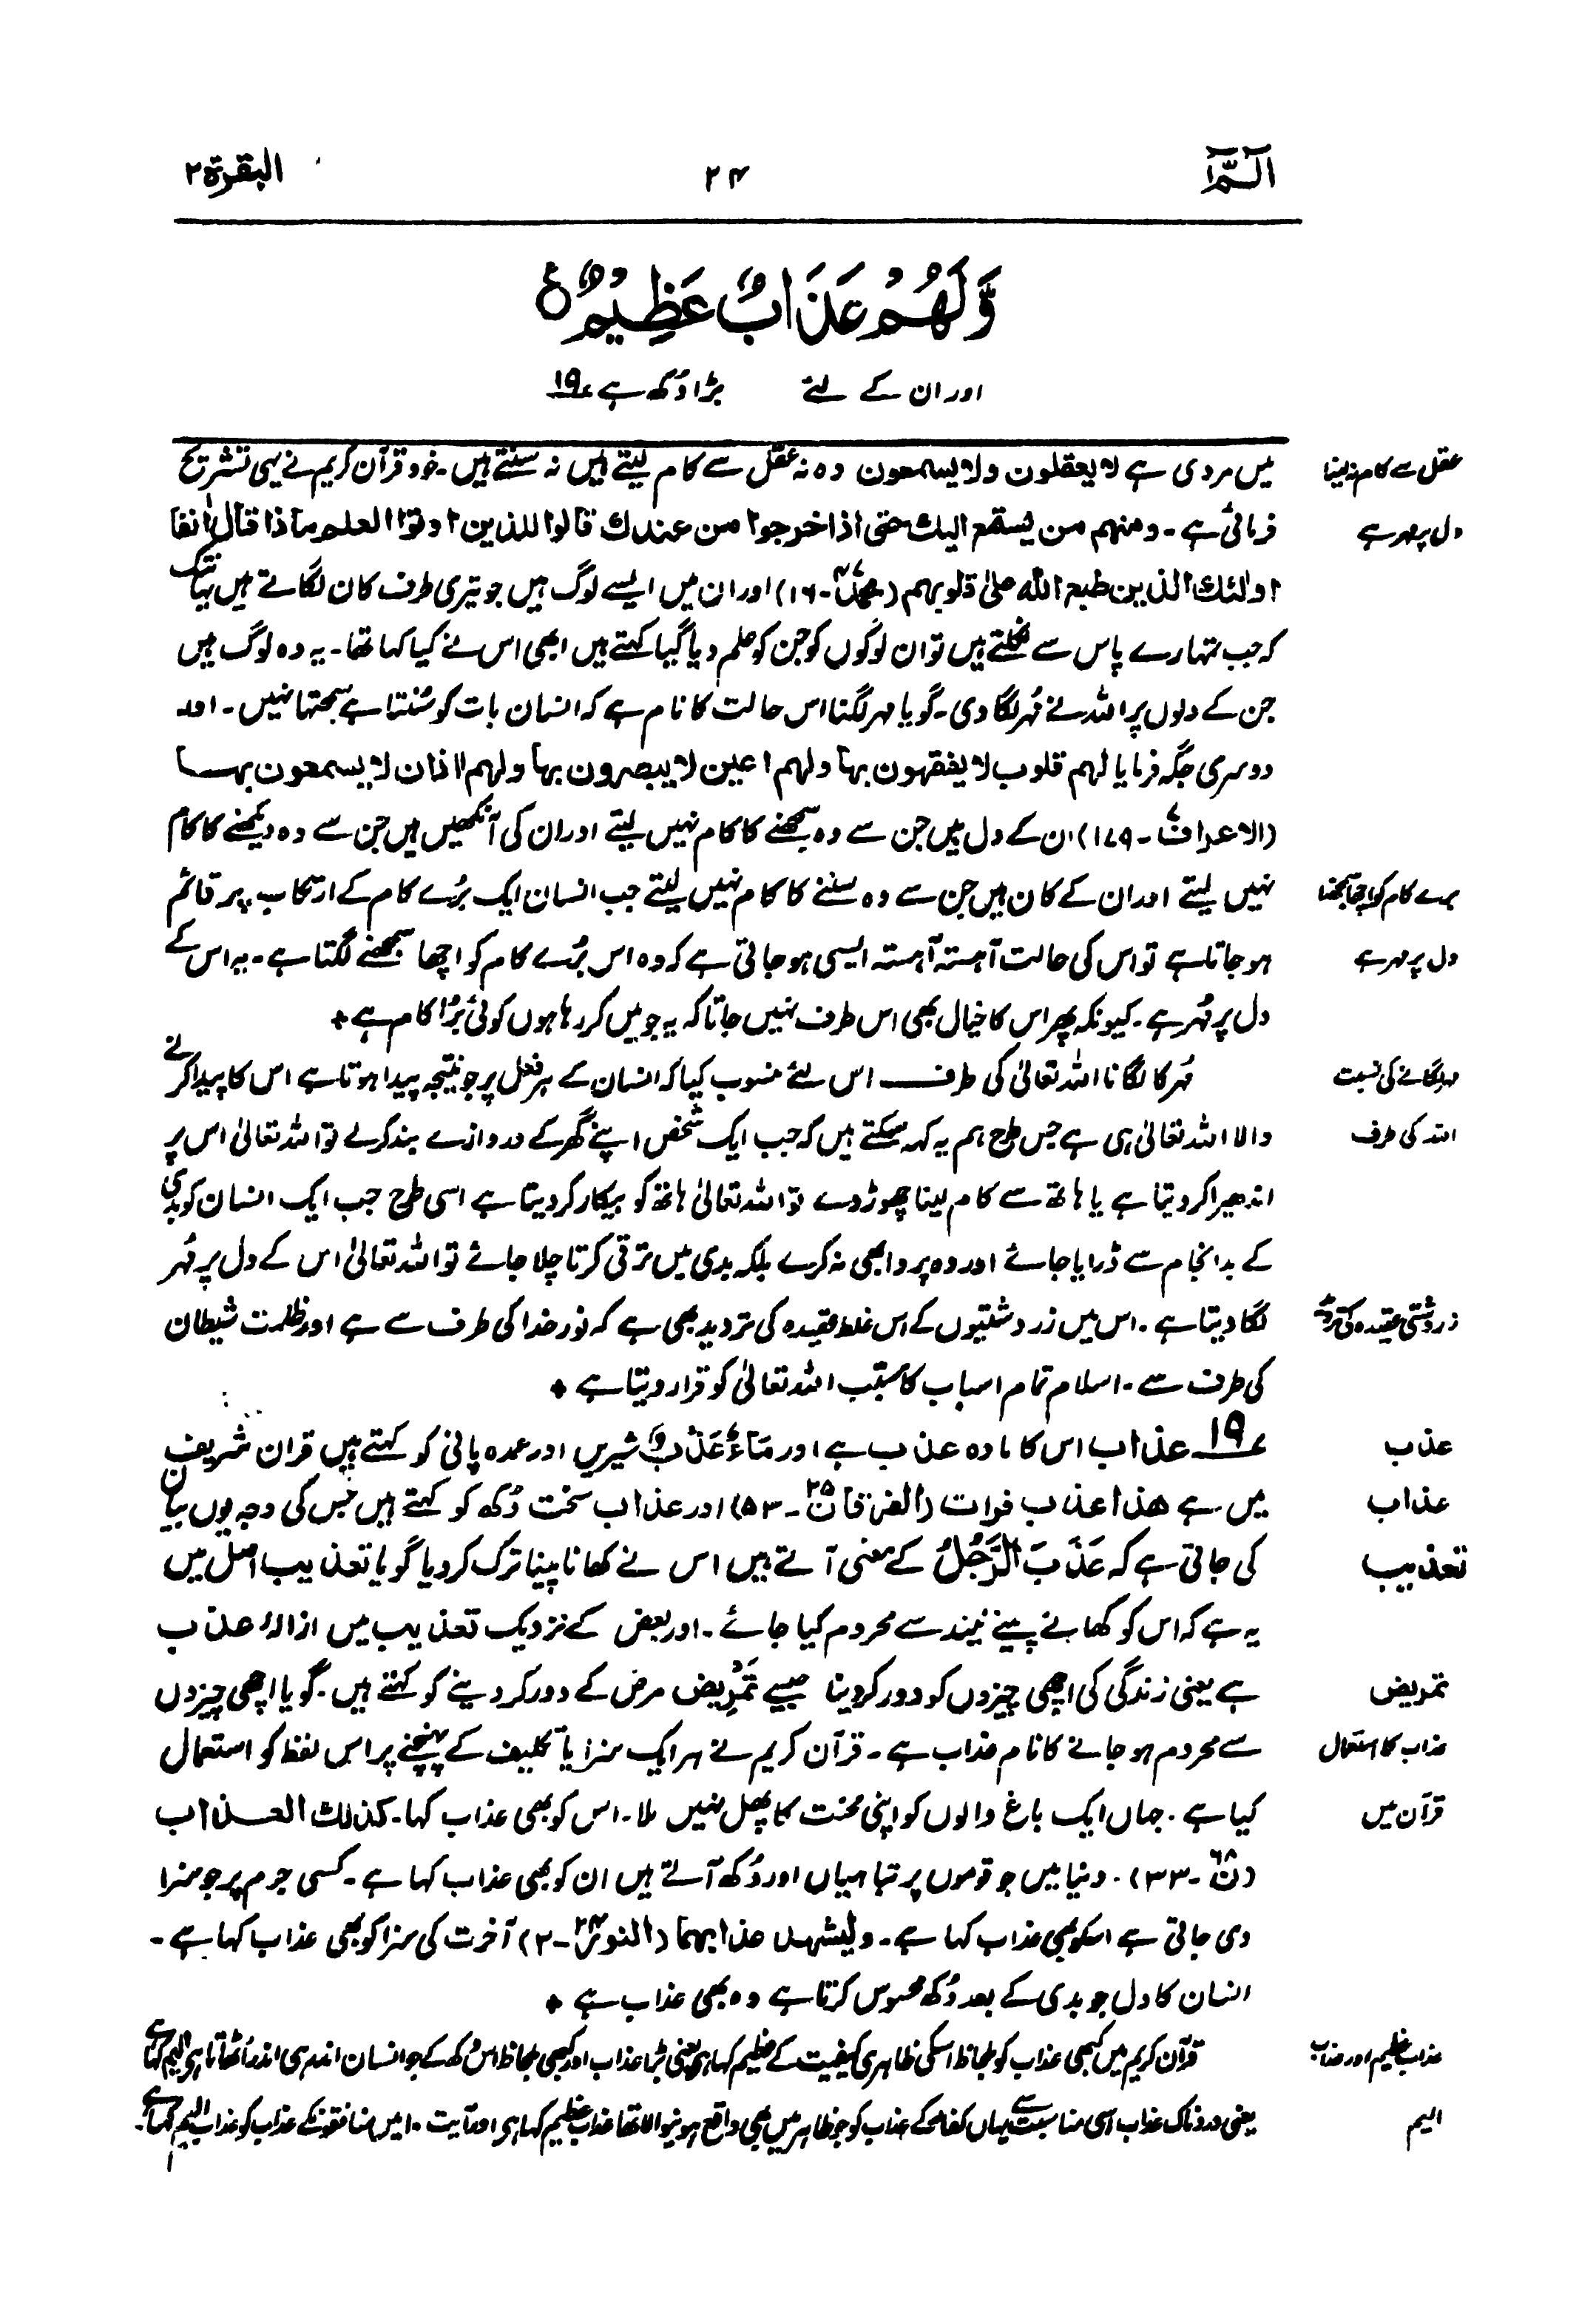 الٓمّٓ
۲۴
البقرة ۲
وَّلَهُمْ عَذَابٌ عَظِيْمٌ ع
اور ان کے لئے بڑا دُکھ ہے ۱۹
عقل سے کام نہ لینا
میں مر دی ہے لا یعقلون ولا یسمعون وہ نہ عقل سے کام لیتے ہیں نہ سنتے ہیں۔ خود قرآن کریم نے یہی تشریح
دل پر مہر ہے
فرمائی ہے۔ ومنہم من یستمع الیک حتی اذا خرجوا من عندک قالوا للذین اوتوا العلم ماذا قال اٰنفا
اولٰئک الذین طبع اللہ علیٰ قلوبہم (محمدؐ ۴۷۔۱۶) اور ان میں ایسے لوگ ہیں جو تیری طرف کان لگاتے ہیں یہانتک
کہ جب تمہارے پاس سے نکلتے ہیں تو ان لوگوں کو جن کو علم دیا گیا کہتے ہیں ابھی اس نے کیا کہا تھا۔ یہ وہ لوگ ہیں
جن کے دلوں پر اللہ نے مُہر لگا دی۔ گویا مہر لگنا اس حالت کا نام ہے کہ انسان بات کو سُنتا ہے سمجھتا نہیں۔ اور
دوسری جگہ فرمایا لہم قلوب لا یفقہون بہا ولہم اعین لا یبصرون بہا ولہم اٰذان لا یسمعون بہا
(الاعراف ۷۔۱۷۹) ان کے دل ہیں جن سے وہ سمجھنے کا کام نہیں لیتے اور ان کی آنکھیں ہیں جن سے وہ دیکھنے کا کام
برے کام کو اچھا سمجھنا
نہیں لیتے اور ان کے کان ہیں جن سے وہ سننے کا کام نہیں لیتے جب انسان ایک بُرے کام کے ارتکاب پر قائم
دل پر مہر ہے
ہو جاتا ہے تو اس کی حالت آہستہ آہستہ ایسی ہو جاتی ہے کہ وہ اس بُرے کام کو اچھا سمجھنے لگتا ہے۔ یہ اس کے
دل پر مُہر ہے۔ کیونکہ پھر اس کا خیال بھی اس طرف نہیں جاتا کہ یہ جو میں کر رہا ہوں کوئی بُرا کام ہے ٭
مہر لگانے کی نسبت
مُہر کا لگانا اللہ تعالیٰ کی طرف اس لئے منسوب کیا کہ انسان کے ہر فعل پر جو نتیجہ پیدا ہوتا ہے اس کا پیدا کرنے
اللہ کی طرف
والا اللہ تعالیٰ ہی ہے جس طرح ہم یہ کہہ سکتے ہیں کہ جب ایک شخص اپنے گھر کے دروازے بند کرلے تو اللہ تعالیٰ اس پر
اندھیرا کر دیتا ہے یا ہاتھ سے کام لینا چھوڑ دے تو اللہ تعالیٰ ہاتھ کو بیکار کر دیتا ہے اسی طرح جب ایک انسان کو بدی
کے بد انجام سے ڈرایا جائے اور وہ پروا بھی نہ کرے بلکہ بدی میں ترقی کرتا چلا جائے تو اللہ تعالیٰ اس کے دل پر مُہر
زردشتی عقیدہ کی تردید
لگا دیتا ہے۔ اس میں زردشتیوں کے اس غلط عقیدہ کی تردید بھی ہے کہ نور خدا کی طرف سے ہے اور ظلمت شیطان
کی طرف سے۔ اسلام تمام اسباب کا مسبّب اللہ تعالیٰ کو قرار دیتا ہے ٭
عذب
۱۹ عذاب اس کا مادہ عذب ہے اور مَآءٌ عَذْبٌ شیریں اور عمدہ پانی کو کہتے ہیں قرآن شریف
عذاب
میں ہے ھذا عذب فرات (الفرقان ۲۵۔۵۳) اور عذاب سخت دُکھ کو کہتے ہیں جس کی وجہ یوں بیان
تعذیب
کی جاتی ہے کہ عَذَبَ الرَّجُلُ کے معنی آتے ہیں اس نے کھانا پینا ترک کر دیا گویا تعذیب اصل میں
یہ ہے کہ اس کو کھانے پینے نیند سے محروم کیا جائے۔ اور بعض کے نزدیک تعذیب میں ازالۂ عذب
تمریض
ہے یعنی زندگی کی اچھی چیزوں کو دور کر دینا جیسے تَمْرِیض مرض کے دور کر دینے کو کہتے ہیں۔ گویا اچھی چیزوں
عذاب کا استعمال
سے محروم ہو جانے کا نام عذاب ہے۔ قرآن کریم نے ہر ایک سزا یا تکلیف کے پہنچنے پر اس لفظ کو استعمال
قرآن میں
کیا ہے۔ جہاں ایک باغ والوں کو اپنی محنت کا پھل نہیں ملا۔ اس کو بھی عذاب کہا۔ کذلک العذاب
(ن ۶۸۔۳۳)۔ دنیا میں جو قوموں پر تباہیاں اور دُکھ آتے ہیں ان کو بھی عذاب کہا ہے۔ کسی جرم پر جو سزا
دی جاتی ہے اسکو بھی عذاب کہا ہے۔ ولیشہد عذابہما (النور ۲۴۔۲) آخرت کی سزا کو بھی عذاب کہا ہے۔
انسان کا دل جو بدی کے بعد دُکھ محسوس کرتا ہے وہ بھی عذاب ہے ٭
عذاب عظیم اور عذاب
قرآن کریم میں کبھی عذاب کو بلحاظ اسکی ظاہری کیفیت کے عظیم کہا ہے یعنی بڑا عذاب اور کبھی بلحاظ اس دُکھ کے جو انسان اندر ہی اندر اُٹھاتا ہے الیم کہا ہے
الیم
یعنی دردناک عذاب اسی مناسبت سے یہاں کفار کے عذاب کو جو ظاہر میں بھی واقع ہونیوالا تھا عذاب عظیم کہا ہے اور آیت ۱۰ میں منافقوں کے عذاب کو عذاب الیم کہا ہے۔